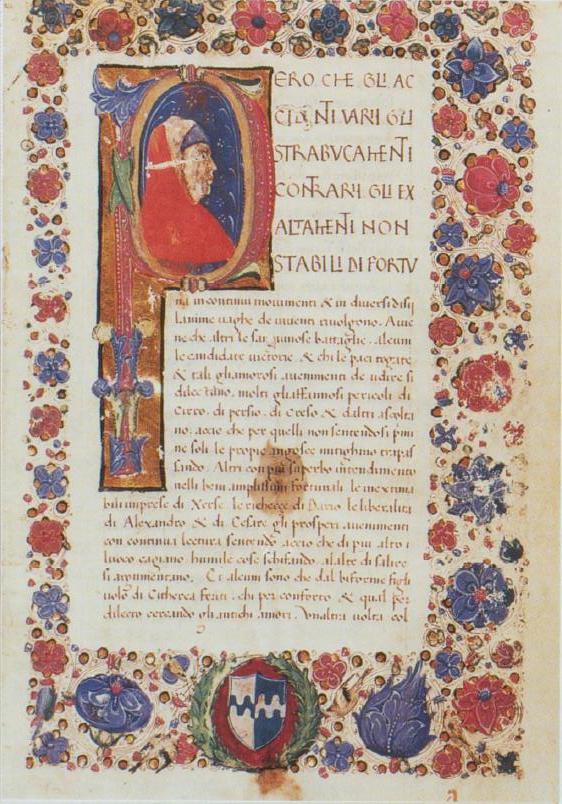 PERO CHE GLI AC
CIDENTI VARII GLI
STRABUCAMENTI
CONTRARII GLI EX
ALTAMENTI NON
STABILI DI FORTU
na in continui movimenti & in diversi disii
Lanime vaghe de viventi rivolgono. Avie
ne che altri le sanguinose battaglie. alcuni
le candidate victorie. & chi le paci togate
& tali gliamorosi avenimenti de udire si
dilectano. molti gli affannosi pericoli di
Cirro. di persio. di Creso & daltri ascolta
no. accio che per quelli non sentendosi primi
ne soli le proprie angosce mitighino trapas
sando. Altri con piu superbo intendimento
nelli beni amplissimi fortunali le inextima
bili imprese di Xerse. le richecce di Dario. le liberalita
di Alexandro & di Cesare gli prosperi avenimenti
con continua lectura sentendo. accio che di piu alto i
luoco cagano humile cose schifando. alalte di salire
si argumentano. Et alcuni sono che dal biforme figli
uolo di Citherea feriti. chi per conforto & qual per
dilecto cercando gli antichi amori. Unaltra volta col